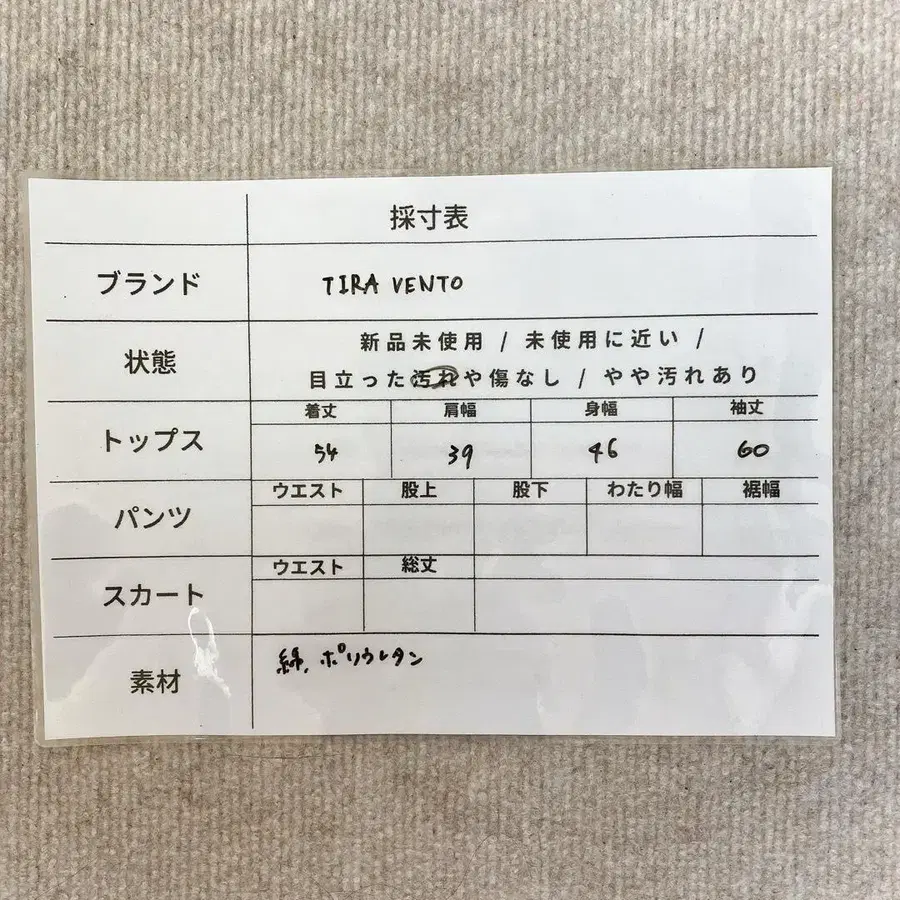 採寸表
ブランド TIRA VENTO
状態 新品未使用 / 未使用に近い /
目立った汚れや傷なし / やや汚れあり
トップス 着丈 肩幅 身幅 袖丈
54 39 46 60
パンツ ウエスト 股上 股下 わたり幅 裾幅
スカート ウエスト 総丈
素材 綿、ポリウレタン